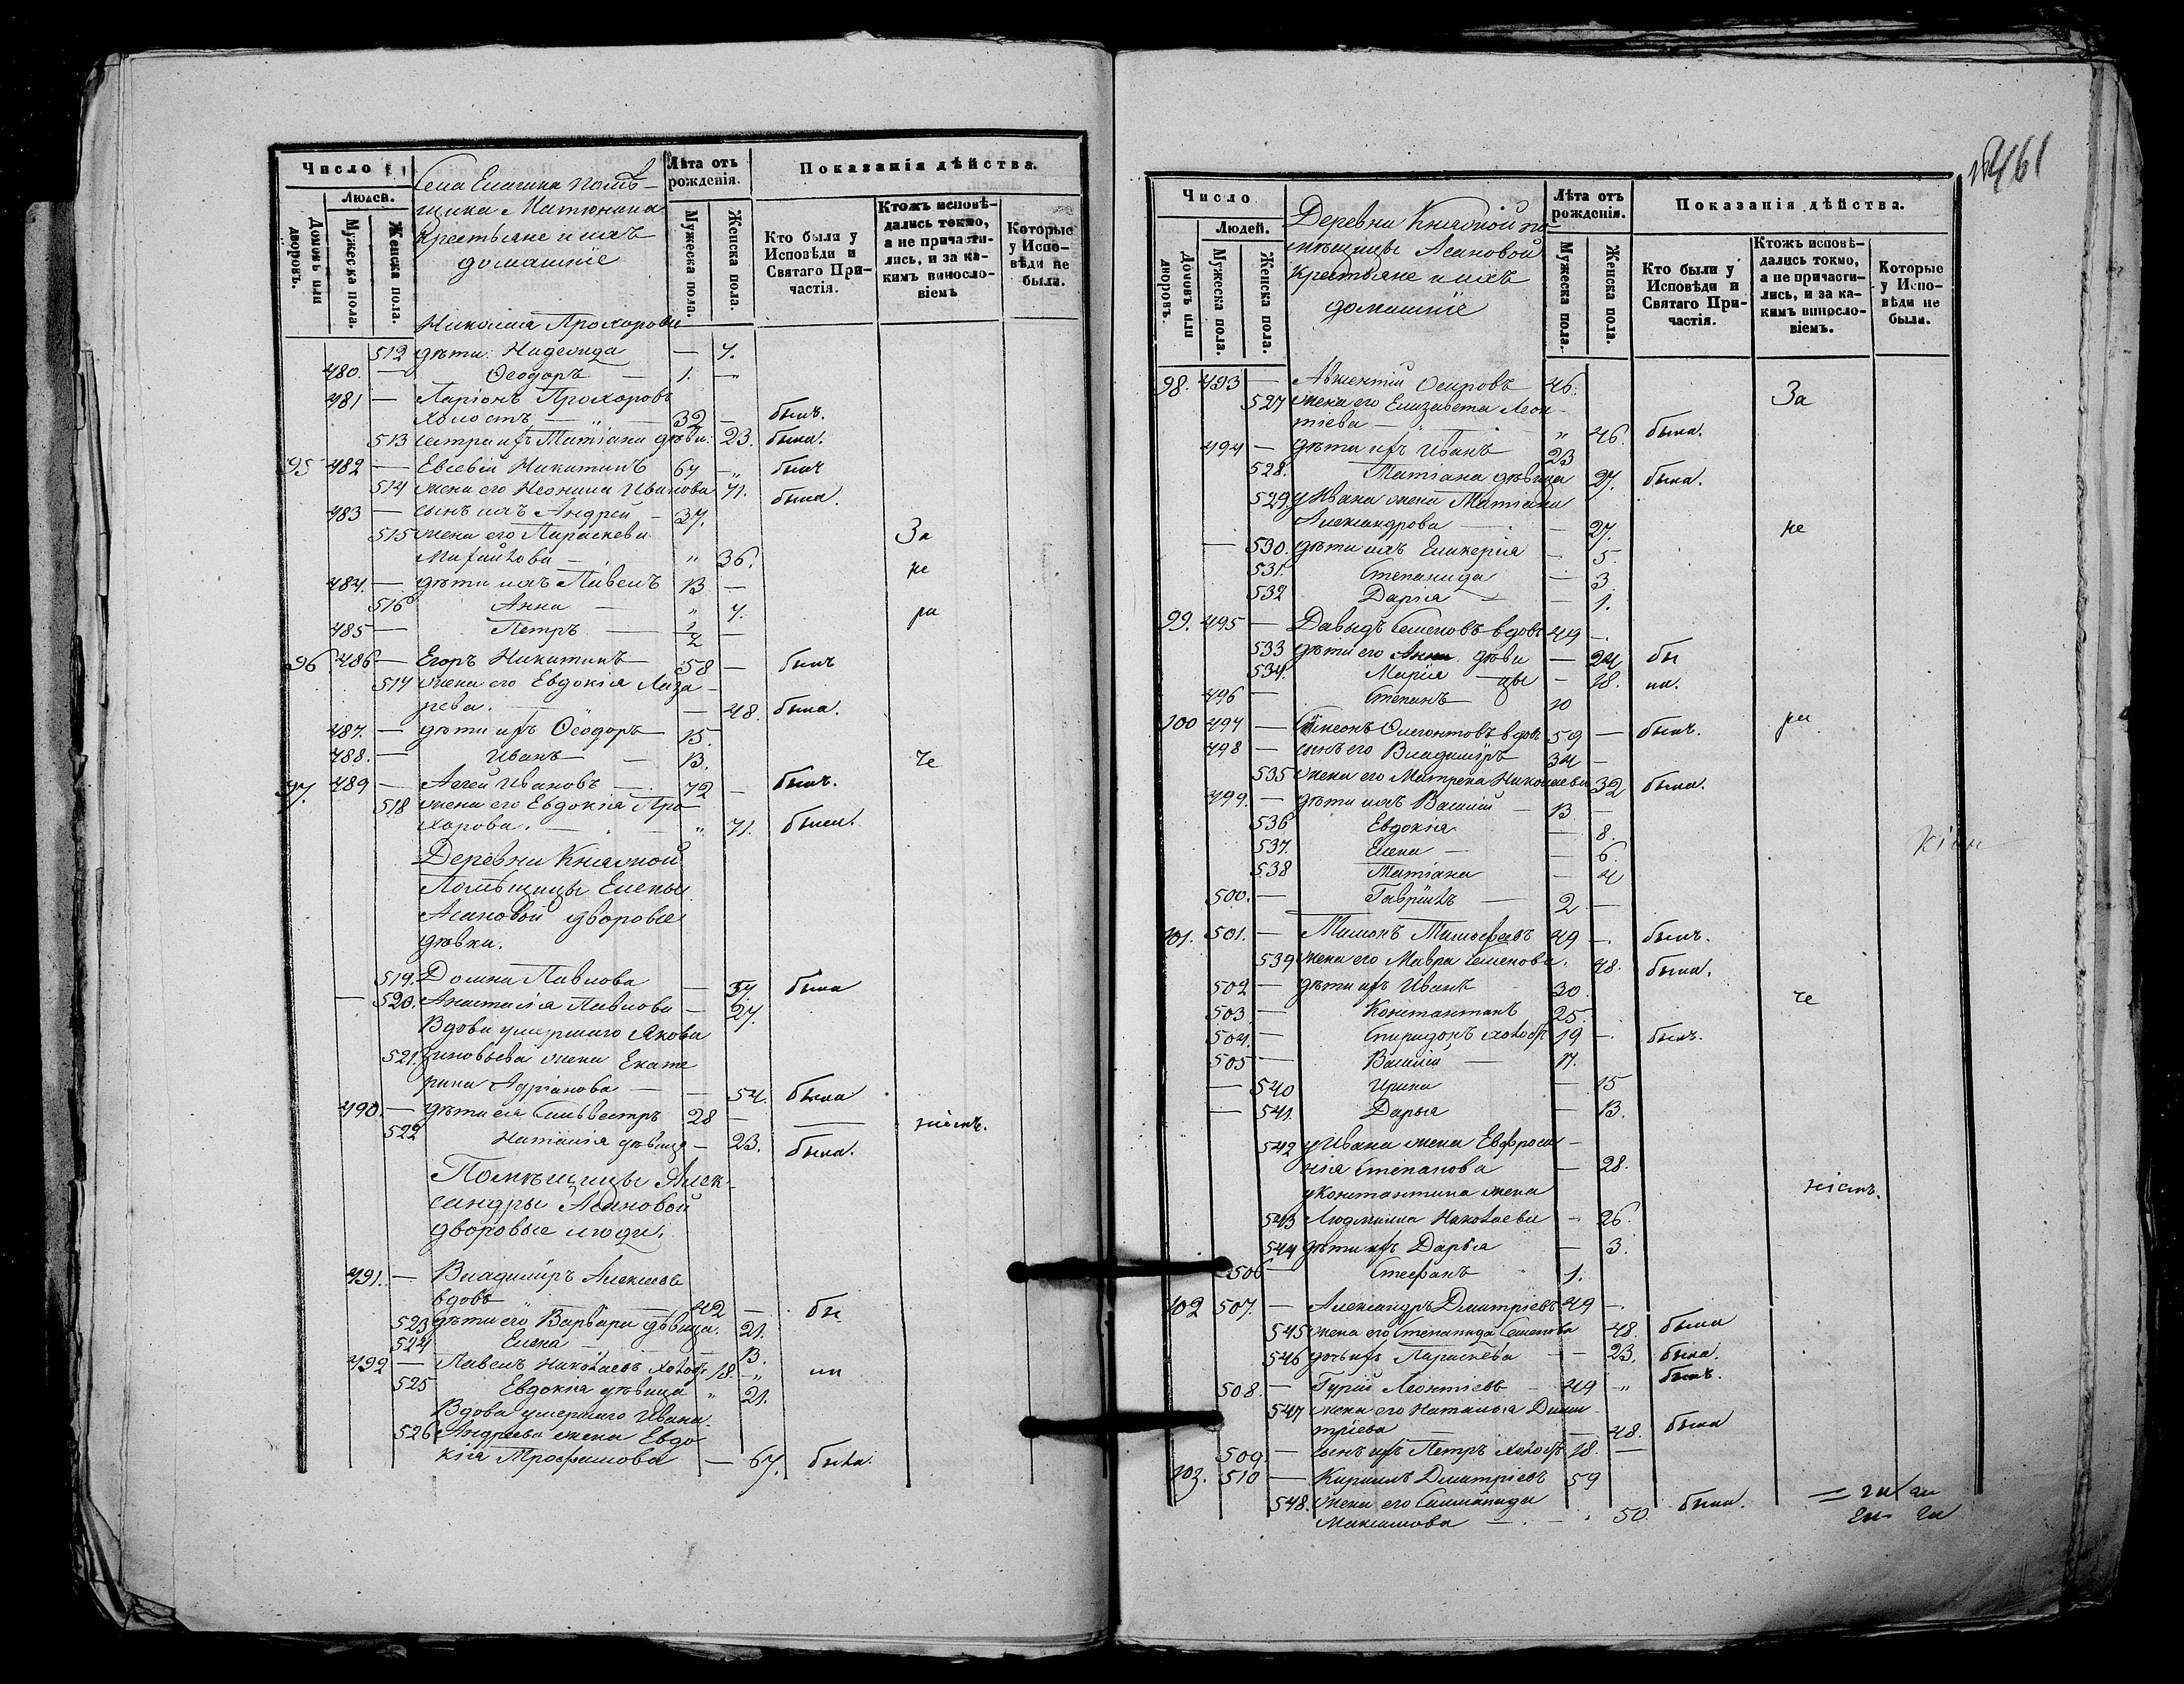 Число
Людей.
Домовъ или дворовъ.
Мужеска пола.
Женска пола.
Села Елагина помѣ-
щика Матюнина
Крестьяне и ихъ
домашніе
Лѣта отъ рожденія.
Мужеска пола.
Женска пола.
Показанія дѣйства.
Кто были у Исповѣди и Святаго При-
частія.
Ктожъ исповѣ-
дались токмо,
а не причасти-
лись, и за ка-
кимъ винosло-
віемъ
Которые
у Испо-
вѣди не
были.
Николая Прохорова
512 дѣти: Надежда — 7.
480. — Ѳеодоръ — 1. —
481 — Ларіонъ Прохоровъ
холостъ — 32 — былъ.
513 сестра ихъ Татіана дѣви: 23. была.
95 482 — Евсевій Никитинъ 64 — былъ
514 жена его Неонила Иванова 71. была.
483 — сынъ ихъ Андрей — 37.
515 жена его Параскева За
Михайлова — " 36.
не
484. — дѣти ихъ Павелъ 13 —
516 Анна — " 7. ра
485 — Петръ — 4 —
96 486 — Егоръ Никитинъ 58 — былъ
517 жена его Евдокія Лаза-
рева. — 48. была.
487. — дѣти ихъ Ѳеодоръ 15.
488. — Иванъ — 13. че
97. 489 — Аггей Ивановъ — 72 — былъ.
518 жена его Евдокія Про-
хорова. — " 71. была.
Деревни Княжой
Помѣщицы Елены
Асановой дворовые
дѣвки.
519. Домна Павлова — 37 была
— 520. Анастасія Павлова — 27.
Вдова умершаго Якова
521. Зиновьева жена Екате
рина Адріанова — 54. была
490. — дѣти ея Сильвестръ 28 — ніемъ.
522 Наталія дѣвица — 23. была.
Помѣщицы Алек-
сандры Асановой
дворовые люди.
491. — Владиміръ Алексѣевъ
вдовъ 42 — бы
523 дѣти его Варвара дѣвица. 21.
524 Елена — 13.
492 — Павелъ Николаевъ холос 18. — ли
525 Евдокія дѣвица " 21.
Вдова умершаго Ивана
526 Андреева жена Евдо
кія Трофимова — 67. была
461
Число
Людей.
Домовъ или дворовъ.
Мужеска пола.
Женска пола.
Деревни Княжой по-
мѣщицы Асановой
Крестьяне и ихъ
домашніе
Лѣта отъ рожденія.
Мужеска пола.
Женска пола.
Показанія дѣйства.
Кто были у Исповѣди и Святаго При-
частія.
Ктожъ исповѣ-
дались токмо,
а не причасти-
лись, и за ка-
кимъ винosло-
віемъ.
Которые
у Испо-
вѣди не
были.
98. 493 — Авксентій Осиповъ 46. За
527 жена его Елизавета Леон-
тіева — " 46. была.
494 — дѣти ихъ Иванъ 23
528. Татіана дѣвица 27. была.
529 у Ивана жена Татіана
Александрова — 27. не
— 530. дѣти ихъ Гликерія — 5.
531. Степанида — 3
532 Дарья — 1.
99. 495 — Давыдъ Семеновъ вдовъ 49 —
533 дѣти его Анна дѣви — 24 бы
534. Марія —цы — 18. ли.
496 — Степанъ 10
100 497 — Симеонъ Ѳлегонтовъ вдов 59 — былъ. ра
498 — сынъ его Владиміръ 34 —
535 жена его Матрена Николаева 32 была.
499. — дѣти ихъ Василій — 13 —
536 Евдокія — 8.
537. Елена — 6.
538 Татіана — 4
500. — Гавріилъ — 2 —
101. 501. — Тимонъ Тимофеевъ 49 — былъ.
539 жена его Мавра Семенова. 48. была.
502 — дѣти ихъ Иванъ 30. че
503 — Константинъ 25.
504. — Спиридонъ холост 19 — былъ.
505 — Василій — 17.
— 540 Ирина — 15
— 541. Дарья — 13.
542 у Ивана жена Евфроси-
нія Степанова — 28.
у Константина жена ніемъ.
543 Людмила Николаева — 26.
544 дѣти ихъ Дарья — 3.
506 — Стефанъ 1.
102 507. — Александръ Дмитріевъ 49 —
545 жена его Степанида Семенова 48. была
546 дочь ихъ Параскева — 23. была.
508. — Гурій Леонтіевъ — 49 — былъ.
547 жена его Наталья Дими-
тріева — 48. была
509. — сынъ ихъ Петръ холост 18. —
103. 510 — Кириллъ Дмитріевъ 59
548. жена его Соломонида
Максимова — 50. была.